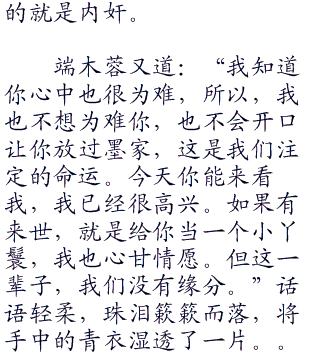 的就是内奸。
端木蓉又道：“我知道
你心中也很为难，所以，我
也不想为难你，也不会开口
让你放过墨家，这是我们注
定的命运。今天你能来看
我，我已经很高兴。如果有
来世，就是给你当一个小丫
鬟，我也心甘情愿。但这一
辈子，我们没有缘分。”话
语轻柔，珠泪簌簌而落，将
手中的青衣湿透了一片。。